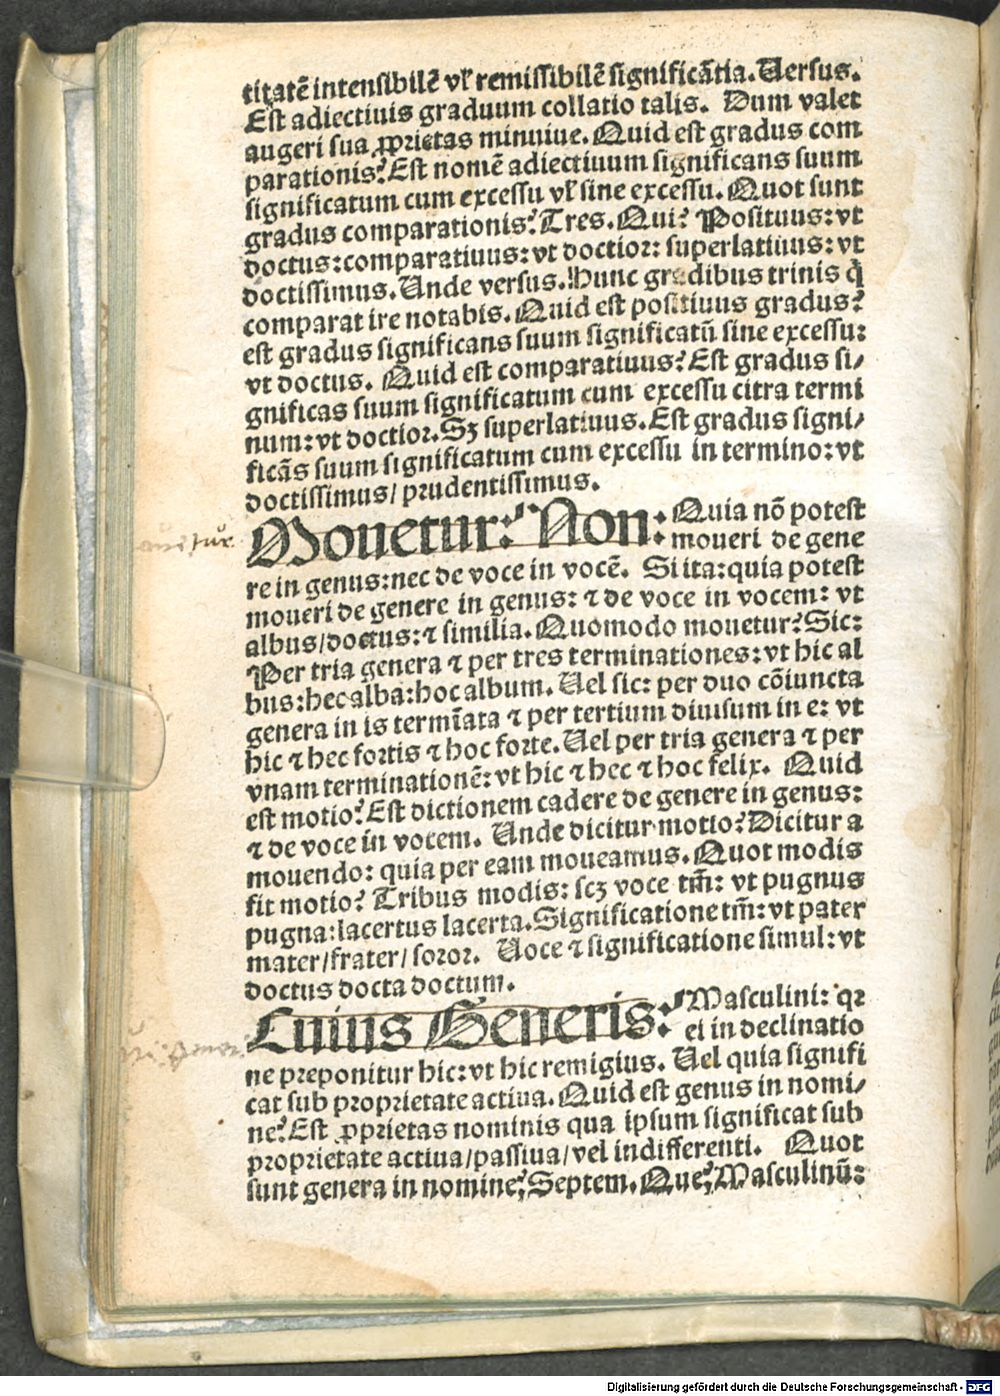 titatē intensibilē vl' remissibilē significātia. Versus.
Est adiectiuis graduum collatio talis. Dum valet
augeri sua ꝓprietas minuiue. Quid est gradus com
parationis? Est nomē adiectiuum significans suum
significatum cum excessu vl' sine excessu. Quot sunt
gradus comparationis? Tres. Qui? Positiuus: vt
doctus: comparatiuus: vt doctior: superlatiuus: vt
doctissimus. Unde versus. Hunc gradibus trinis q̇
comparat ire notabis. Quid est positiuus gradus?
est gradus significans suum significatū sine excessu:
vt doctus. Quid est comparatiuus? Est gradus si/
gnificas suum significatum cum excessu citra termi
num: vt doctior. Sz superlatiuus. Est gradus signi/
ficās suum significatum cum excessu in termino: vt
doctissimus/ prudentissimus.
Mouetur? Non: Quia nō potest
moueri de gene
re in genus: nec de voce in vocē. Si ita: quia potest
moueri de genere in genus: ⁊ de voce in vocem: vt
albus/ doctus: ⁊ similia. Quomodo mouetur? Sic:
Per tria genera ⁊ per tres terminationes: vt hic al
bus: hec alba: hoc album. Uel sic: per duo cōiuncta
genera in is termīata ⁊ per tertium diuisum in e: vt
hic ⁊ hec fortis ⁊ hoc forte. Uel per tria genera ⁊ per
vnam terminationē: vt hic ⁊ hec ⁊ hoc felix. Quid
est motio? Est dictionem cadere de genere in genus:
⁊ de voce in vocem. Unde dicitur motio? Dicitur a
mouendo: quia per eam moueamus. Quot modis
fit motio? Tribus modis: scz voce tm̄: vt pugnus
pugna: lacertus lacerta. Significatione tm̄: vt pater
mater/ frater/ soror. Uoce ⁊ significatione simul: vt
doctus docta doctum.
Cuius Generis? Masculini: qꝛ
ei in declinatio
ne preponitur hic: vt hic remigius. Uel quia signifi
cat sub proprietate actiua. Quid est genus in nomi/
ne? Est ꝓprietas nominis qua ipsum significat sub
proprietate actiua/ passiua/ vel indifferenti. Quot
sunt genera in nomine? Septem. Que? Masculinū:
Digitalisierung gefördert durch die Deutsche Forschungsgemeinschaft - DFG